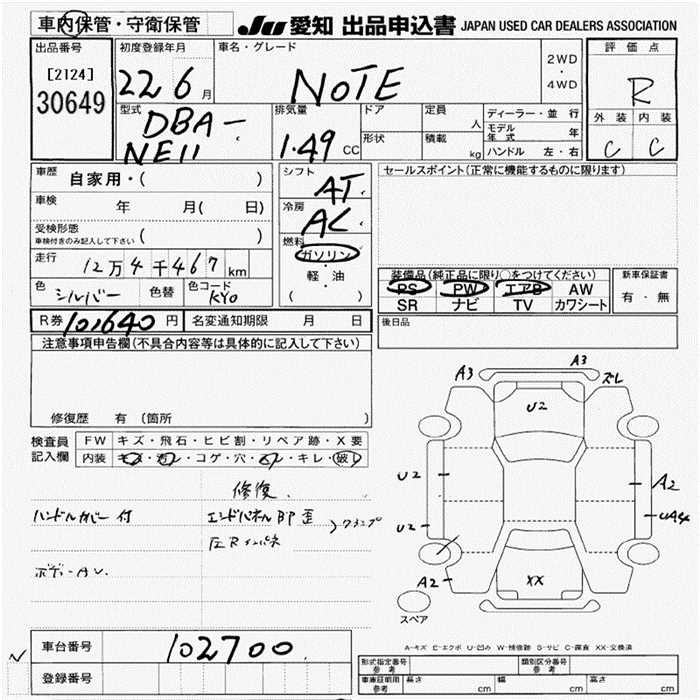 車内保管・守衛保管 JU 愛知 出品申込書 JAPAN USED CAR DEALERS ASSOCIATION
出品番号 初度登録年月 車名・グレード 評価点
[2124] 30649 22 6 月 NOTE 2WD ・ 4WD R
型式 排気量 ドア 定員 人 ディーラー・並行 外装 内装
DBA- NE11 1.49 CC 形状 積載 kg モデル年式 年 C C
ハンドル 左・右
車歴 自家用・( ) シフト AT セールスポイント(正常に機能するものに限ります)
車検 年 月( 日) 冷房 AC
受検形態 ( )
車検付きのみ記入して下さい
燃料 ガソリン ・ 軽・油 ( )
走行 12万4千467km
装備品(純正品に限り○をつけてください) 新車保証書
PS PW エアB AW 有・無
SR ナビ TV カワシート
色 シルバー 色替 色コード KY0
R券 10,640 円 名変通知期限 月 日 後日品
注意事項申告欄(不具合内容等は具体的に記入して下さい)
修復歴 有 (箇所
検査員記入欄 FW キズ・飛石・ヒビ割・リペア跡・X要
内装 キズ・汚レ・コゲ・穴・スレ・キレ・破レ
修復
ハンドルカバー付 エンドパネルBP歪
左Rインパネ
ボディーAU.
A3 A3 ズレ
U2
U2 A2
U2 UA4
A2 XX
スペア
A-キズ E-エクボ U-凹み W-補修跡 S-サビ C-腐食 XX-交換済
車台番号 102700
登録番号
型式指定番号 参考 類別区分番号 参考
車庫証明用 参考 長さ cm 幅 cm 高さ cm